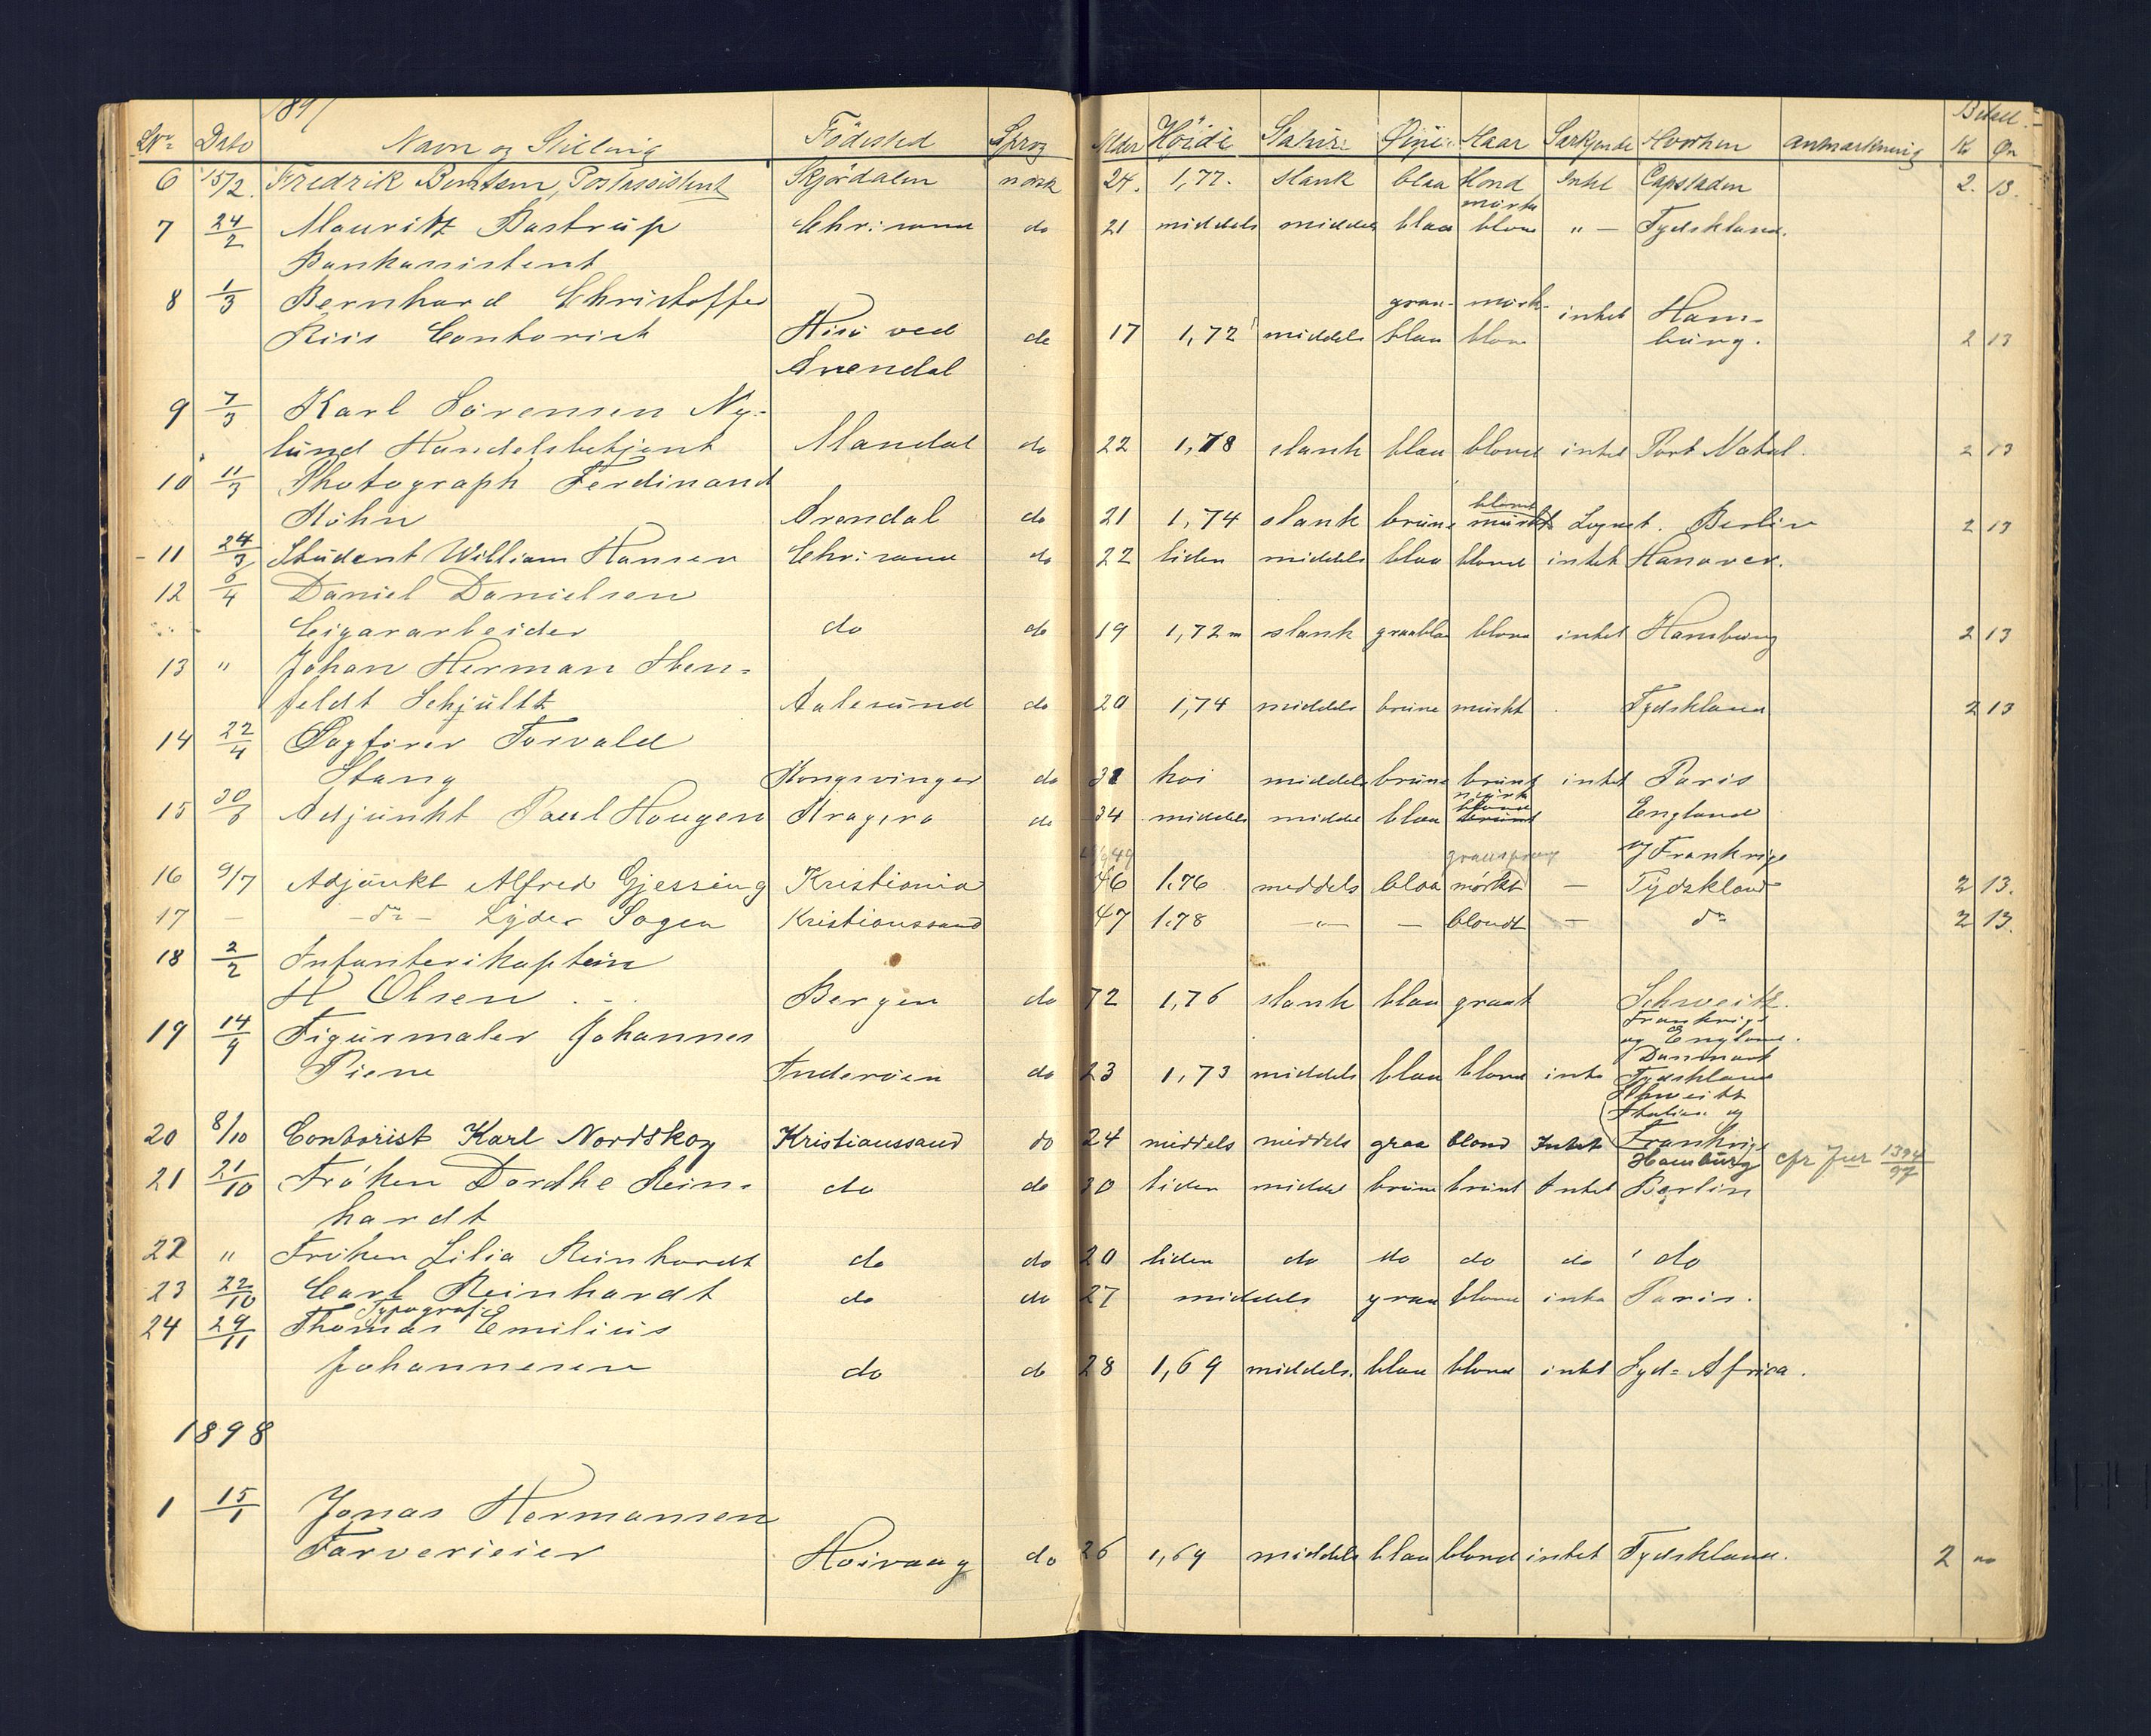 1897
No Dato Navn og Stilling Födested Sprog Alder Höide Statur Öine Haar Særkjende Hvorhen Anmærkning Betalt Kr Ør
6 15/2 Fredrik Berntsen, Postassistent Skjördalen norsk 24. 1,77. Slank blaa blond Intet Capstaden 2. 13.
7 24/2 Mauritz Bastrup Chr:sand do 21 middels middels blaa mörk blond " — Tydskland.
Bankassistent
8 1/3 Bernhard Christoffer
Riis Contorist Hisö ved Arendal do 17 1,72 middels graa-blaa mörk-blond intet Ham-burg. 2 13
9 7/3 Karl Sörensen Ny-
lund Handelsbetjent Mandal do 22 1,78 slank blaa blond intet Port Natal. 2 13
10 11/3 Photograph Ferdinand
Köhn Arendal do 21 1,74 slank brune mörkt Lognet. Berlin 2 13
- 11 24/3 Student William Hansen Chr:sand do 22 liden middels blaa blond intet Hanover.
12 6/4 Daniel Danielsen
Cigararbeider do do 19 1,72 m slank graablaa blond intet Hamburg 2 13
13 " Johan Herman Sten-
feldt Schjultz Aalesund do 20 1,74 middels brune mörkt Tydskland 2 13
14 22/4 Sagförer Torvald
Stang Kongsvinger do 31 höi middels brune brunt intet Paris
15 30/6 Adjunkt Paul Hougen Kragerö do 34 middels middel blaa mörk blond England
og Frankrige
16 9/7 Adjunkt Alfred Gjessing Kristiania 46 1.76 middels blaa graasprængt mörkt — Tydskland 2 13.
17 — — do — Lyder Sagen Kristianssand 47 1.78 —"— — blondt — do 2 13.
18 2/2 Infanterikaptein
H. Olsen Bergen do 72 1,76 slank blaa graat Schweitz.
Frankrige
og England.
19 14/9 Figurmaler Johannes
Piene Inderöen do 23 1,73 middels blaa blond inte Danmark
Tydskland
Schweitz
Italien og
Frankrige
20 8/10 Contorist Karl Nordskog Kristianssand do 24 middels middels graa blond Intet Hamburg cfr Jur 1394/97
21 21/10 Fröken Dordthe Rein-
hardt do do 30 liden middel brune brunt Intet Berlin
22 " Fröken Lilia Reinhardt do do 20 liden do do do do do
23 22/10 Carl Reinhardt do do 27 middels graa blond inte Paris.
Typograf
24 29/11 Thomas Emilius
Johannesen do do 28 1,69 middels. blaa blond intet Syd=Africa.
1898
1 15/1 Jonas Hermansen
Farverieier Höivaag do 26 1,69 middels blaa blond intet Tydskland. 2 "